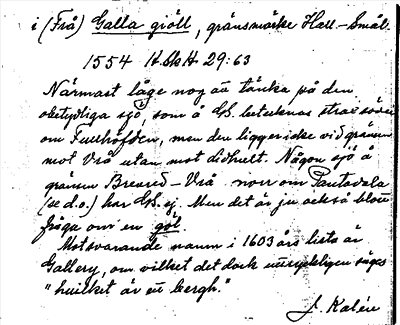 i (Frå) Galla giöll, gränsmärke Hall.-Smål.
1554 H Sk H 29:63
Närmast låge nog att tänka på den
obetydliga sjö, som å GS. betecknas strax söder
om Fullhöfden, men den ligger icke vid gränsen
mot Vrå utan mot Lidhult. Någon sjö å
gränsen Breared-Vrå norr om Pautadala
(se d.o.) har GS. ej. Men det är ju också blott
fråga om en göl.
Motsvarande namn i 1603 års lista är
Gallery, om vilket det dock uttryckligen säges
"huilket är ett bergh."
J. Kalén